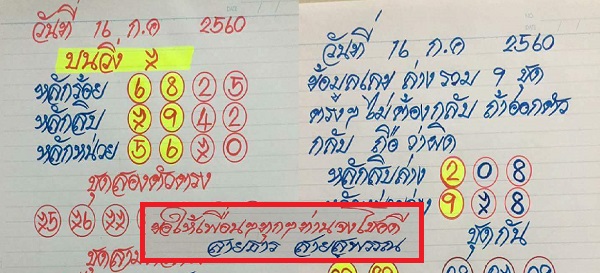 วันที่ 16 ก.ค 2560
บนวิ่ง
หลักร้อย 6 8 2 5
หลักสิบ 7 9 4 2
หลักหน่วย 5 6 7 0
ชุดสองตัวตรง
75 76
ชุดสาม
วันที่ 16 ก.ค 2560
ข้อมูลเดิม ล่างรวม 9 ชุด
ตรงๆ ไม่ต้องกลับ ถ้าออกตัว
กลับ ถือว่าผิด
หลักสิบล่าง 2 0 8
9 7 8
ชุดกัน
ขอให้เพื่อนๆทุกๆท่านจงโชคดี
สายธาร สายสุพรรณ